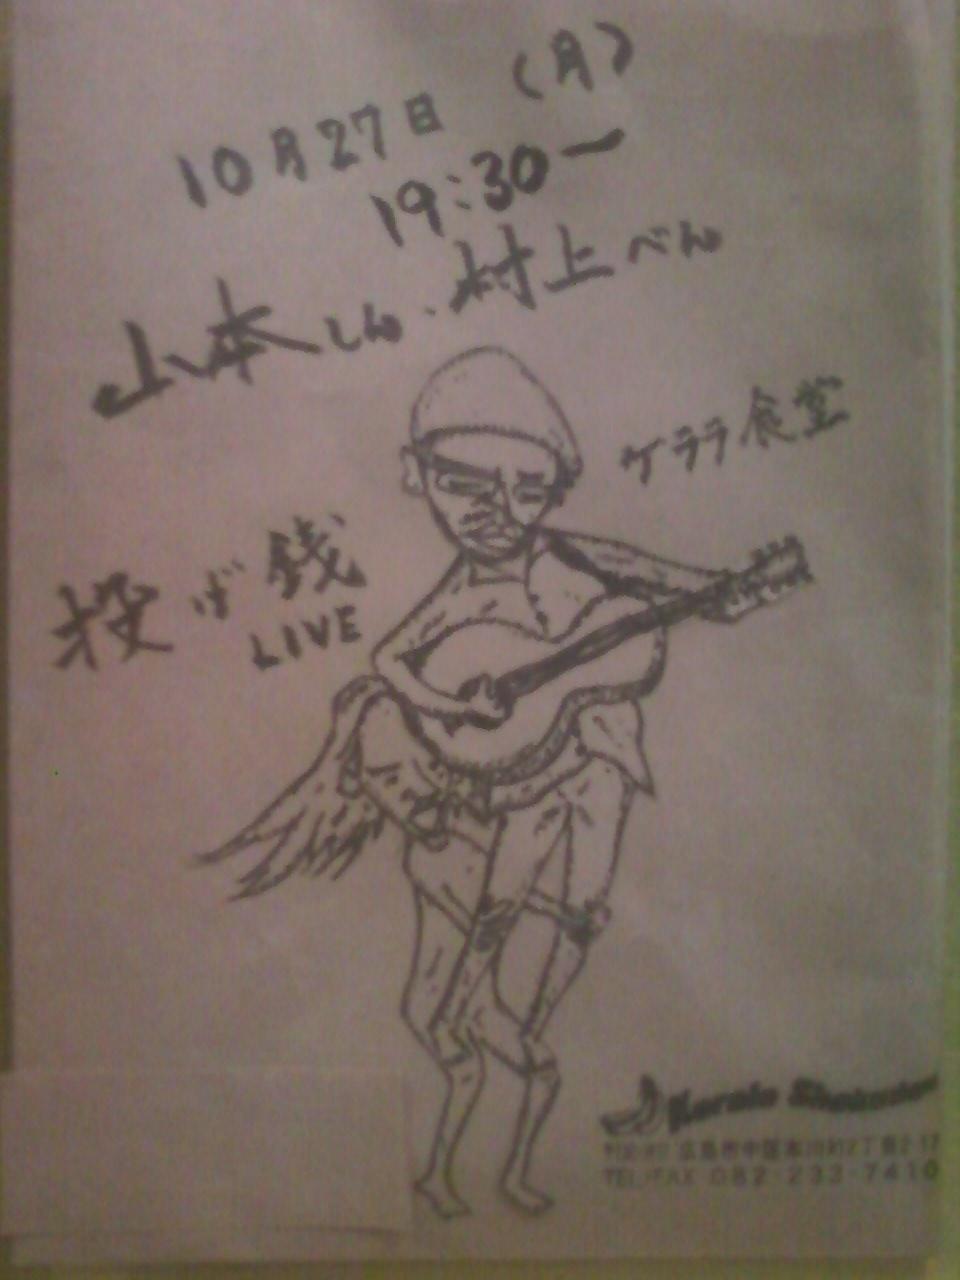 10月27日 (月)
19:30ー
山本しん・村上べん
ケララ食堂
投げ銭
LIVE
広島市中区本川町2丁目2-17
TEL・FAX 082-233-7410